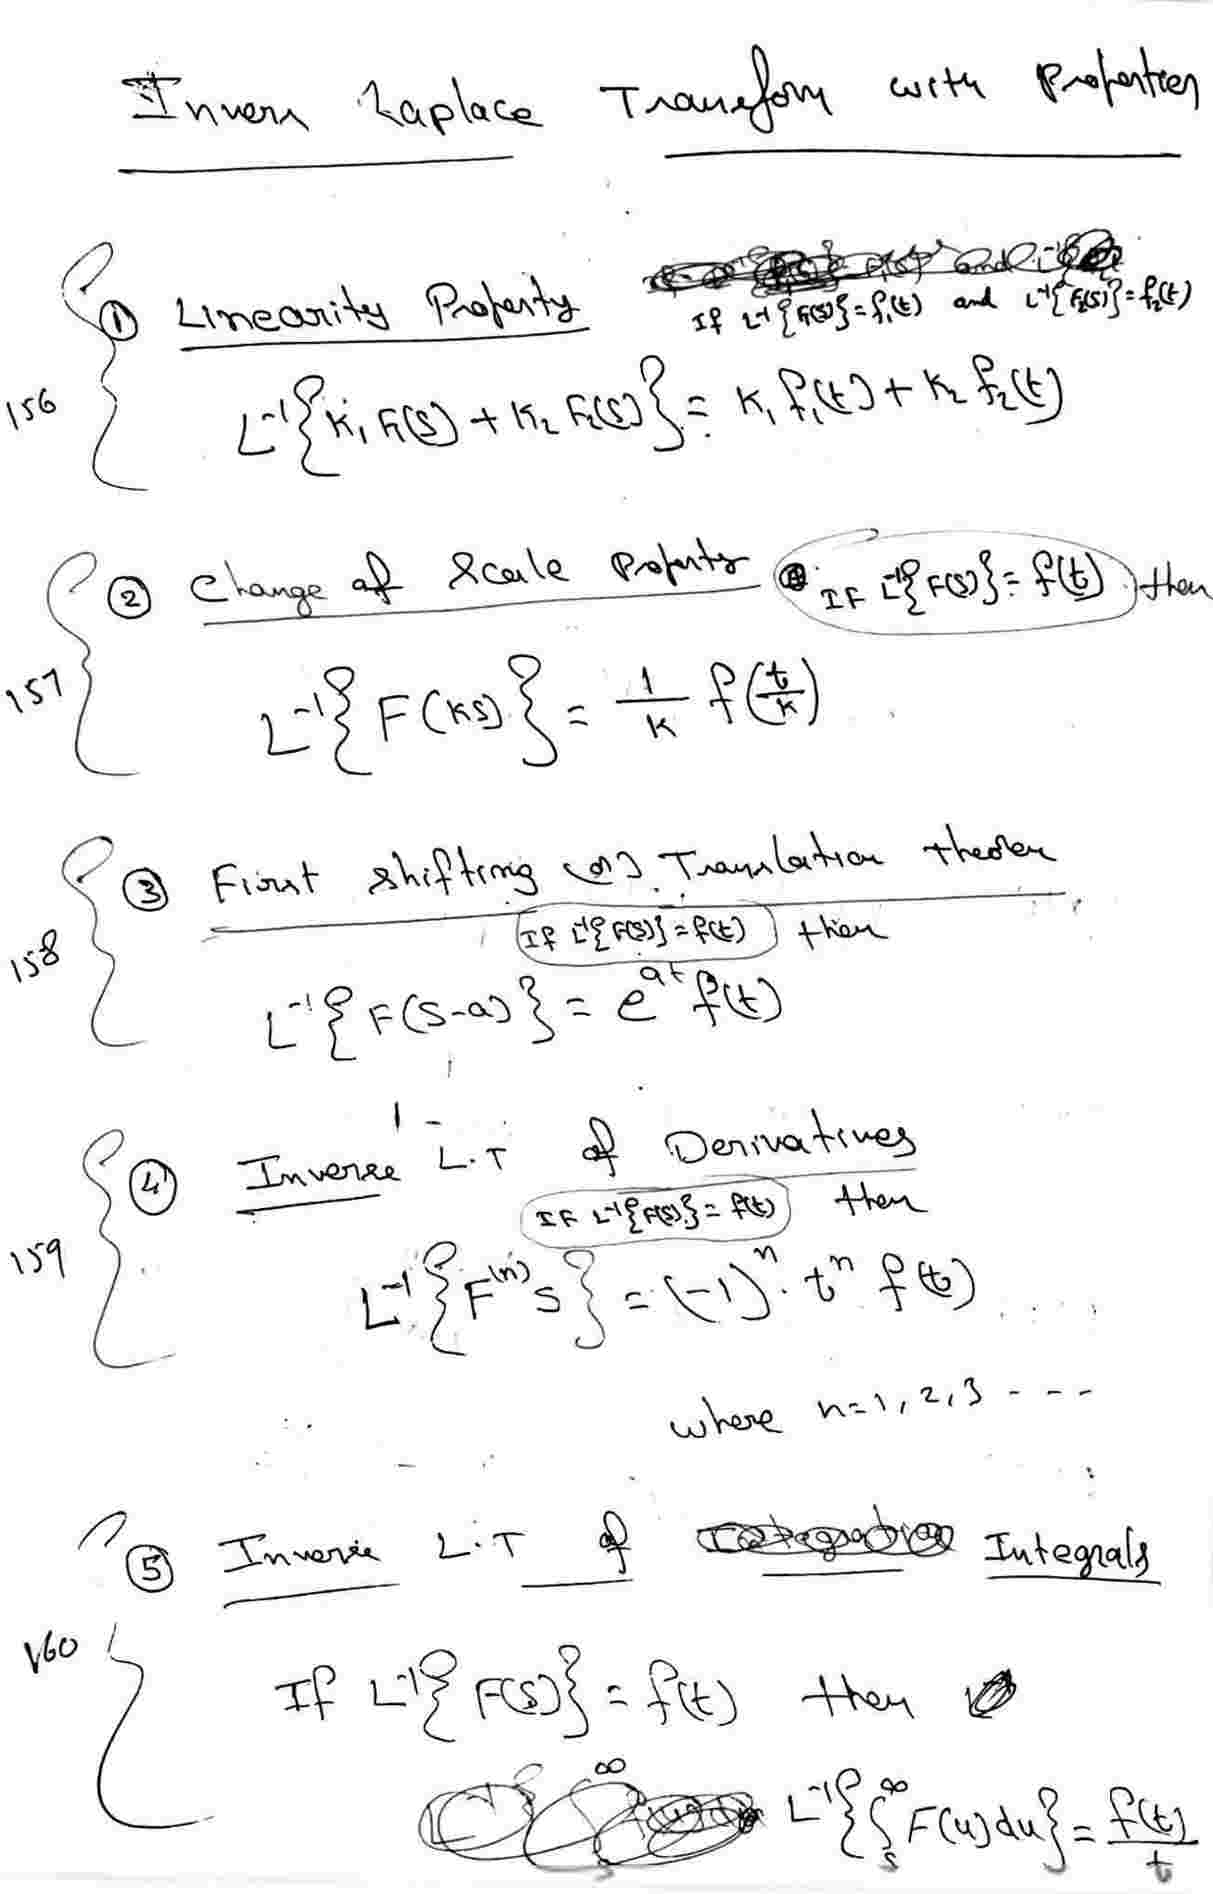 Inverse Laplace Transform with Properties
① Linearity Property If L⁻¹{F₁(s)} = f₁(t) and L⁻¹{F₂(s)} = f₂(t)
156 L⁻¹{K₁ F₁(s) + K₂ F₂(s)} = K₁ f₁(t) + K₂ f₂(t)
② Change of Scale Property IF L⁻¹{F(s)} = f(t) then
157 L⁻¹{F(ks)} = 1/k f(t/k)
③ First shifting (or) Translation theorem
158 If L⁻¹{F(s)} = f(t) then
L⁻¹{F(s-a)} = e^{at} f(t)
④ Inverse L.T of Derivatives
IF L⁻¹{F(s)} = f(t) then
159 L⁻¹{F⁽ⁿ⁾s} = (-1)ⁿ. tⁿ f(t)
where n=1, 2, 3 - - -
⑤ Inverse L.T of Integrals
160 If L⁻¹{F(s)} = f(t) then
L⁻¹{∫ₛ^∞ F(u)du} = f(t)/t